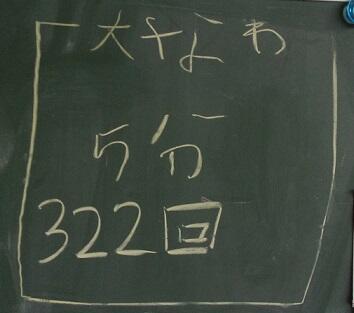 大なわ
5分
322回